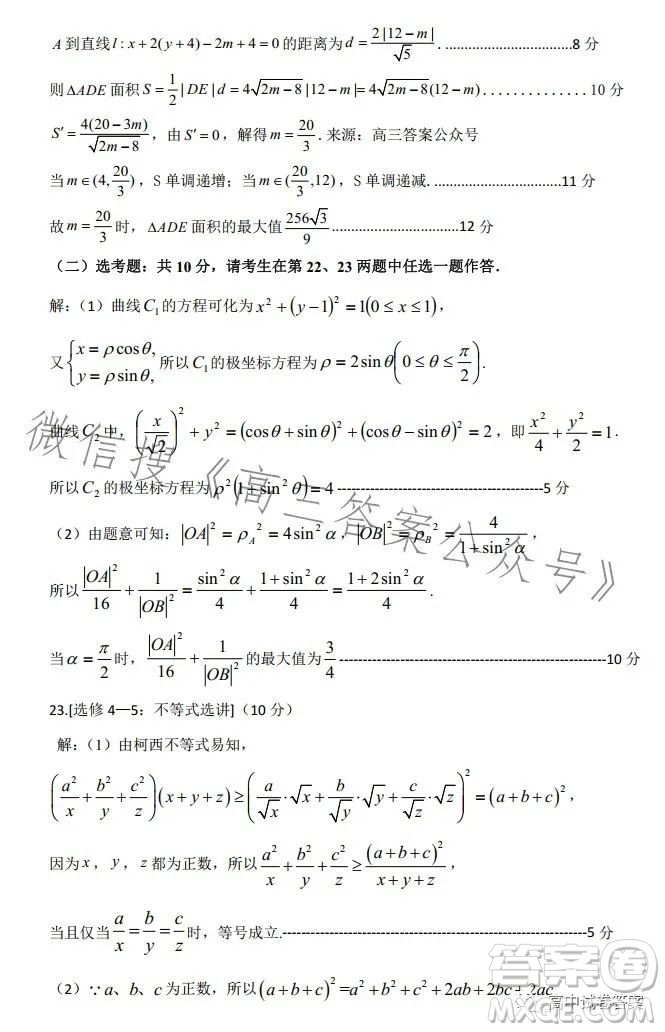 A到直线l:x+2(y+4)-2m+4=0的距离为d=2|12-m|/√5. ................................8 分
则ΔADE面积S=1/2|DE|d=4√(2m-8)|12-m|=4√(2m-8)(12-m)..............10 分
S′=4(20-3m)/√(2m-8)，由S′=0，解得m=20/3. 来源：高三答案公众号
当m∈(4,20/3)，S 单调递增；当m∈(20/3,12)，S 单调递减. ................................11 分
故m=20/3时，ΔADE面积的最大值256√3/9................................12 分
（二）选考题：共 10 分，请考生在第 22、23 两题中任选一题作答．
解：（1）曲线C₁的方程可化为x²+(y-1)²=1(0≤x≤1)，
又{x=ρcosθ, y=ρsinθ,所以C₁的极坐标方程为ρ=2sinθ(0≤θ≤π/2).
曲线C₂中，(x/√2)²+y²=(cosθ+sinθ)²+(cosθ-sinθ)²=2，即x²/4+y²/2=1.
所以C₂的极坐标方程为ρ²(1+sin²θ)=4 ----------------------------------------5 分
（2）由题意可知：|OA|²=ρ_A²=4sin²α，|OB|²=ρ_B²=4/(1+sin²α)，
所以|OA|²/16+1/|OB|²=sin²α/4+(1+sin²α)/4=(1+2sin²α)/4.
当α=π/2时，|OA|²/16+1/|OB|²的最大值为3/4 ----------------------------------------------------10 分
23.[选修 4—5：不等式选讲]（10 分）
解：（1）由柯西不等式易知，
(a²/x+b²/y+c²/z)(x+y+z)≥(a/√x·√x+b/√y·√y+c/√z·√z)²=(a+b+c)²，
因为x，y，z都为正数，所以a²/x+b²/y+c²/z≥(a+b+c)²/(x+y+z)，
当且仅当a/x=b/y=c/z时，等号成立.----------------------------------------------------------5 分
（2）∵a、b、c为正数，所以(a+b+c)²=a²+b²+c²+2ab+2bc+2ac
微信搜《高三答案公众号》
答案圈
MXQE.COM
高中试卷答案